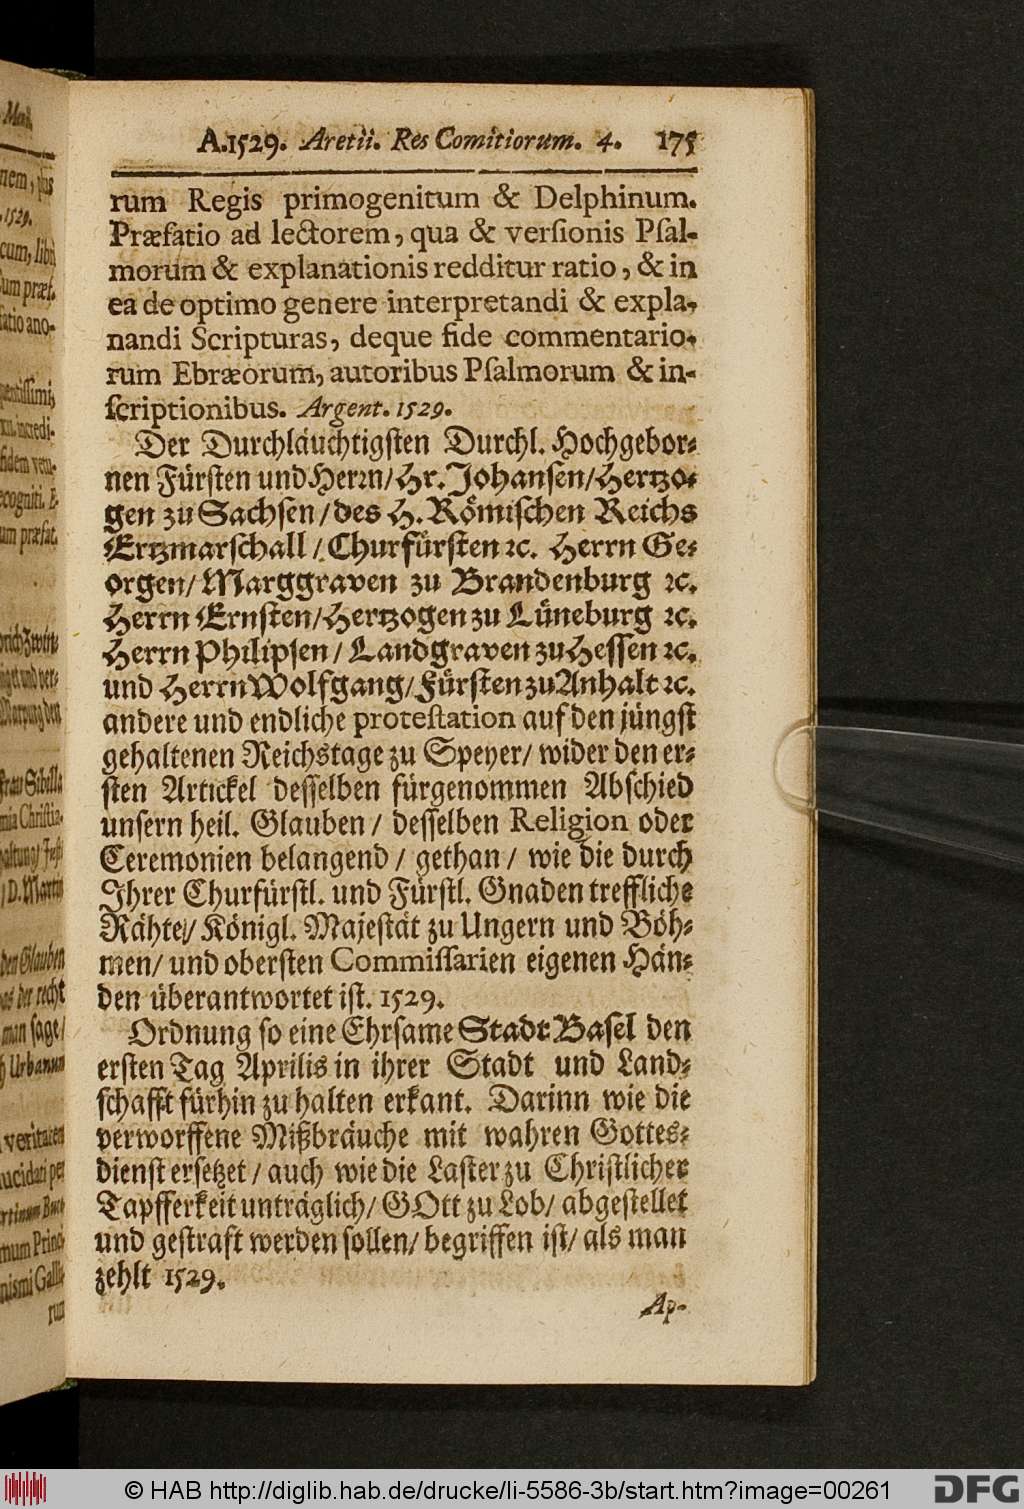 A.1529. Aretii. Res Comitiorum. 4. 175
rum Regis primogenitum & Delphinum.
Præfatio ad lectorem, qua & versionis Psal-
morum & explanationis redditur ratio, & in
ea de optimo genere interpretandi & expla-
nandi Scripturas, deque fide commentario-
rum Ebræorum, autoribus Psalmorum & in-
scriptionibus. Argent. 1529.
Der Durchläuchtigsten Durchl. Hochgebor-
nen Fürsten und Herrn/ Hr. Johansen/ Hertzo-
gen zu Sachsen/ des H. Römischen Reichs
Ertzmarschall/ Churfürsten ꝛc. Herrn Ge-
orgen/ Marggraven zu Brandenburg ꝛc.
Herrn Ernsten/ Hertzogen zu Lüneburg ꝛc.
Herrn Philipsen/ Landgraven zu Hessen ꝛc.
und Herrn Wolfgang/ Fürsten zu Anhalt ꝛc.
andere und endliche protestation auf den jüngst
gehaltenen Reichstage zu Speyer/ wider den er-
sten Artickel desselben fürgenommen Abschied
unsern heil. Glauben/ desselben Religion oder
Ceremonien belangend/ gethan/ wie die durch
Ihrer Churfürstl. und Fürstl. Gnaden treffliche
Rähte/ Königl. Majestät zu Ungern und Böh-
men/ und obersten Commissarien eigenen Hän-
den überantwortet ist. 1529.
Ordnung so eine Ehrsame Stadt Basel den
ersten Tag Aprilis in ihrer Stadt und Land-
schafft fürhin zu halten erkant. Darinn wie die
verworffene Mißbräuche mit wahren Gottes-
dienst ersetzet/ auch wie die Laster zu Christlicher
Tapfferkeit unträglich/ GOtt zu Lob/ abgestellet
und gestraft werden sollen/ begriffen ist/ als man
zehlt 1529.
Ap-
© HAB http://diglib.hab.de/drucke/li-5586-3b/start.htm?image=00261
DFG